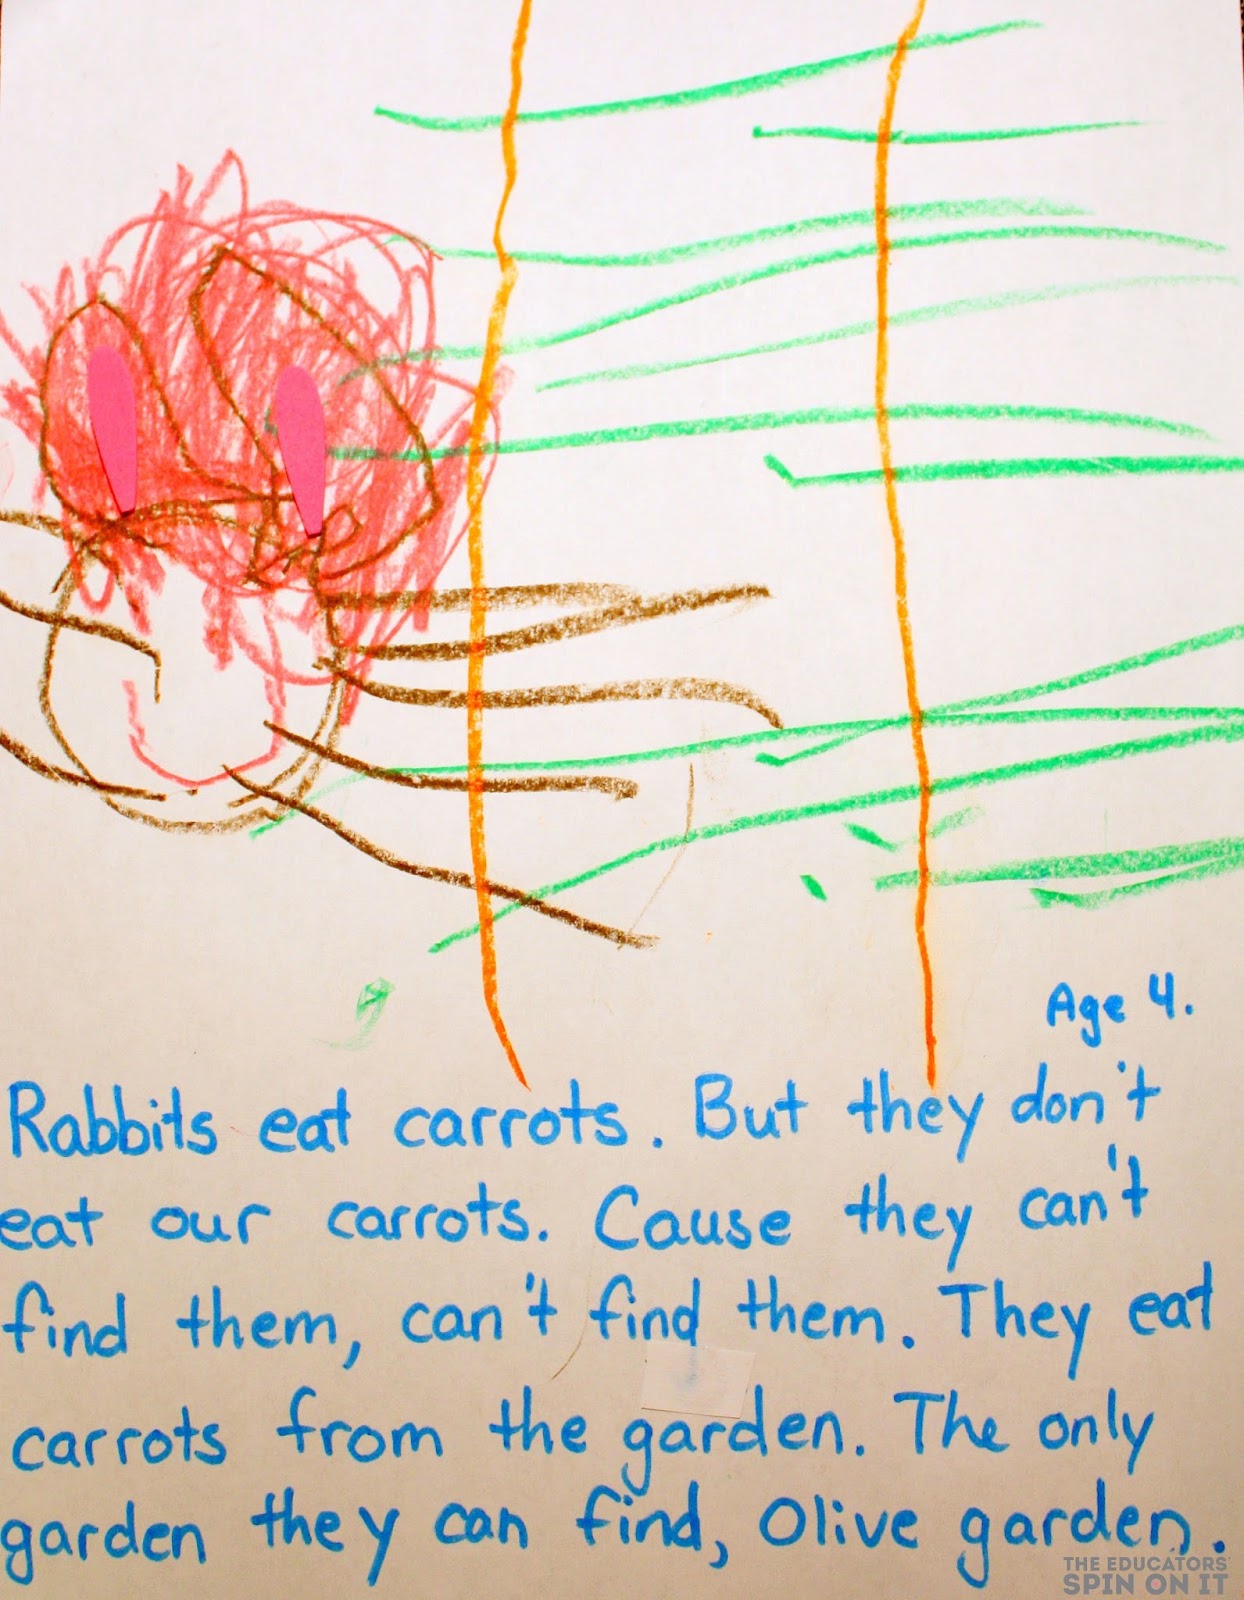 Age 4.
Rabbits eat carrots. But they don't
eat our carrots. Cause they can't
find them, can't find them. They eat
carrots from the garden. The only
garden they can find, Olive garden.
THE EDUCATORS'
SPIN ON IT